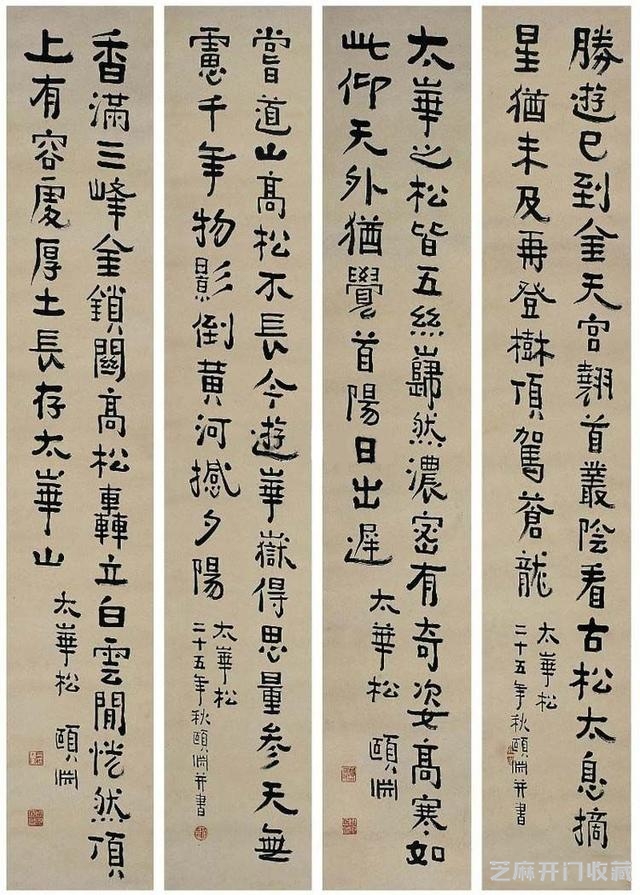 勝遊已到金天宮翹首叢陰看古松太息摘
星猶未及再登樹頂駕蒼龍
太華松
二十五年秋頤淵并書
太華之松皆五絲巋然濃密有奇姿高寒如
此仰天外猶覺首陽日出遲
太華松 頤淵
嘗道山高松不長今遊華嶽得思量參天無
慮千年物影倒黃河撼夕陽
太華松
二十五年秋頤淵并書
香滿三峰金鎖關高松矗立白雲閒恍然頂
上有容處厚土長存太華山
太華松 頤淵
芝麻开门收藏